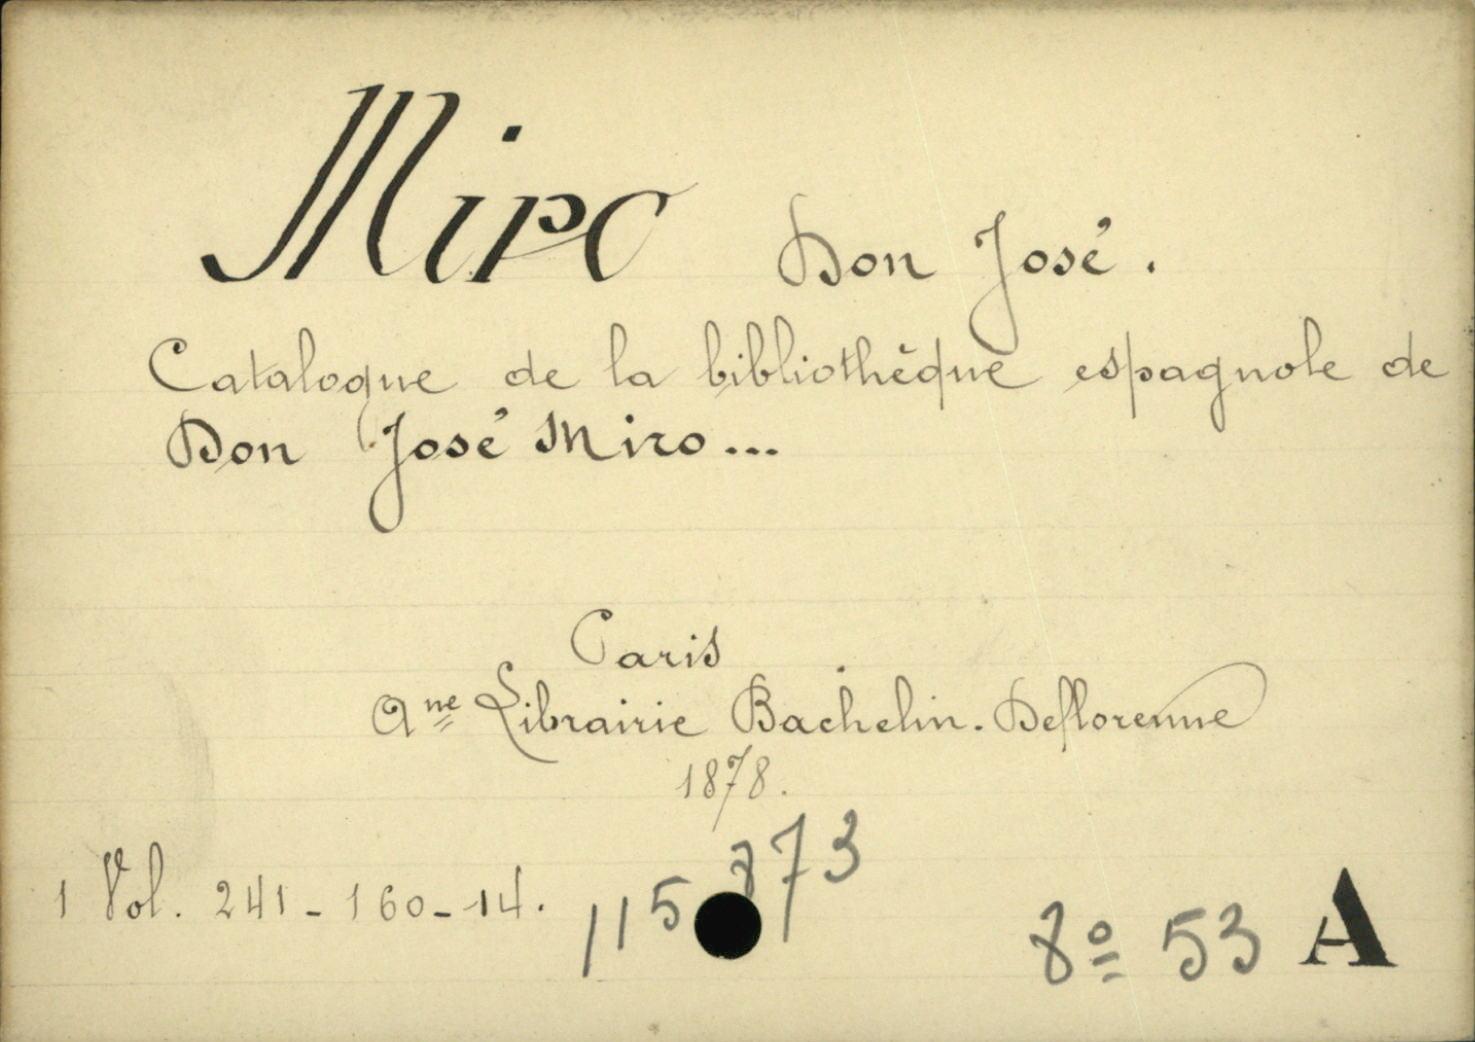 Miro Don José.
Catalogue de la bibliothèque espagnole de
Don José Miro...
Paris
Ane Librairie Bachelin-Deflorenne
1878.
1 Vol. 241-160-14. 115873
8º 53 A